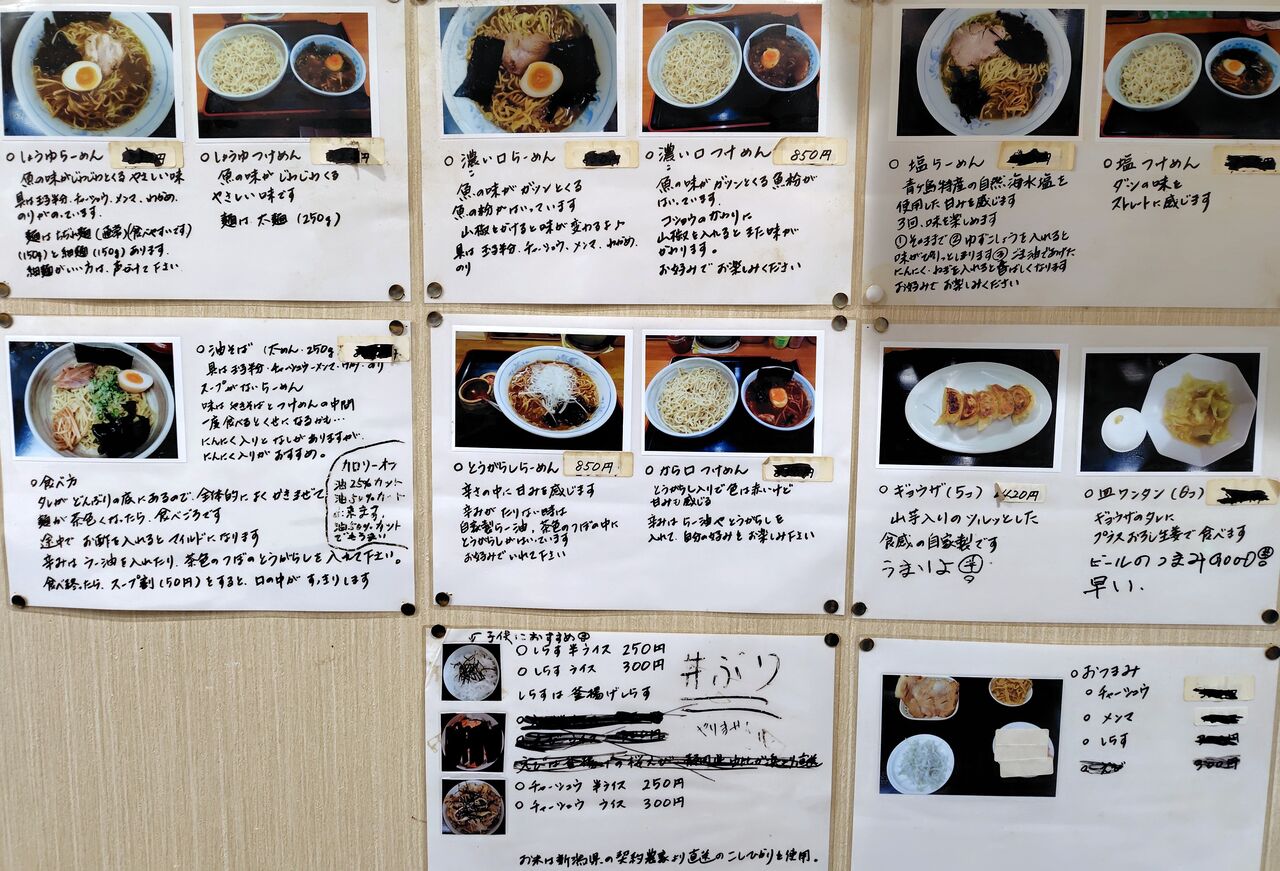 ○しょうゆらーめん
魚の味がじわじわとくるやさしい味
具は玉子半分、チャーシュウ、メンマ、わかめ、
のりがのっています。
麺は ちぢれ麺(通常)(食べやすいです)
(150g)と細麺(150g)あります。
細麺がいい方は、声かけて下さい
○しょうゆつけめん
魚の味がじわじわくる
やさしい味です
麺は太麺(250g)
○濃い口らーめん
魚の味がガツンとくる
魚の粉がはいっています
山椒をかけると味が変わるよ♪
具は玉子半分、チャーシュウ、メンマ、わかめ、
のり
○濃い口つけめん 850円
魚の味がガツンとくる魚粉が
はいっています.
コショウのかわりに
山椒を入れるとまた味が
かわります。
お好みでお楽しみください
○塩らーめん
青ヶ島特産の自然海水塩を
使用した甘みを感じます
3回、味を楽しめます
①そのままで②ゆずこしょうを入れると
味がぴりっとしまります③ごま油であげた
にんにく・ねぎを入れると香ばしくなります
お好みでお楽しみください
○塩つけめん
ダシの味を
ストレートに感じます
○油そば (太めん・250g
具は玉子半分・チャーシュウ・メンマ・ワカメ・のり
スープがないらーめん
味はやきそばとつけめんの中間
一度食べるとくせになるかも…
にんにく入りとなしがありますが、
にんにく入りがおすすめ。
カロリーオフ
油25%カット
油50%カット
出来ます。
油カット
○食べ方
タレがどんぶりの底にあるので、全体的によくかきまぜて
麺が茶色くなったら、食べごろです
途中でお酢を入れるとマイルドになります
辛みはラー油を入れたり、茶色のつぼのとうがらしを入れて下さい。
食べ終ったら、スープ割(50円)をすると、口の中がすっきりします
○とうがらしらーめん 850円
辛さの中に甘みを感じます
辛みがたりない時は
自家製らー油、茶色のつぼの中に
とうがらしがはいっています。
お好みでいれて下さい
○から口つけめん
とうがらし入りで色は赤いけど
甘みも感じる
辛みはらー油やとうがらしを
入れて、自分の好みをお楽しみ下さい
○ギョウザ(5コ) 420円
山芋入りのツルッとした
食感の自家製です
うまいよ
○皿ワンタン(8コ)
ギョウザのタレに
プラスおろし生姜で食べます
ビールのつまみGOOD
早い.
子供におすすめ
○しらす半ライス 250円
○しらすライス 300円
しらすは釜揚げしらす
○チャーシュウ 半ライス 250円
○チャーシュウ ライス 300円
お米は新潟県の契約農家より直送のこしひかりを使用。
○おつまみ
○チャーシュウ
○メンマ
○しらす